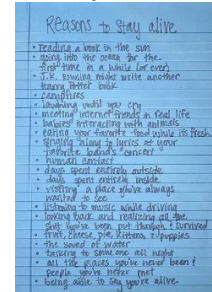 Reasons to Stay alive
• reading a book in the sun
• going into the ocean for the
first time in a while (or ever)
• J.K. Rowling might write another
Harry Potter book
• campfires
• laughing until you cry
• meeting internet friends in real life
• babies interacting with animals
• eating your favorite food while its fresh
• singing along to lyrics at your
favorite band's concert
• human contact
• days spent entirely outside
• days spent entirely inside
• visiting a place you've always
wanted to see
• listening to music while driving
• looking back and realizing all the
shit you've been put through & survived
• fruit, cheese, pie, kittens, & puppies
• the sound of water
• talking to someone all night
• all the places you've never been &
people you've never met
• being able to say you're alive